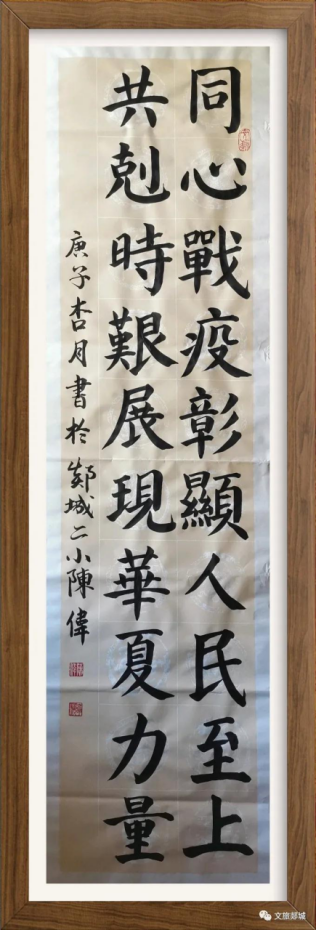 同心戰疫彰顯人民至上
共剋時艱展現華夏力量
庚子杏月書於郯城二小陳偉
文旅郯城